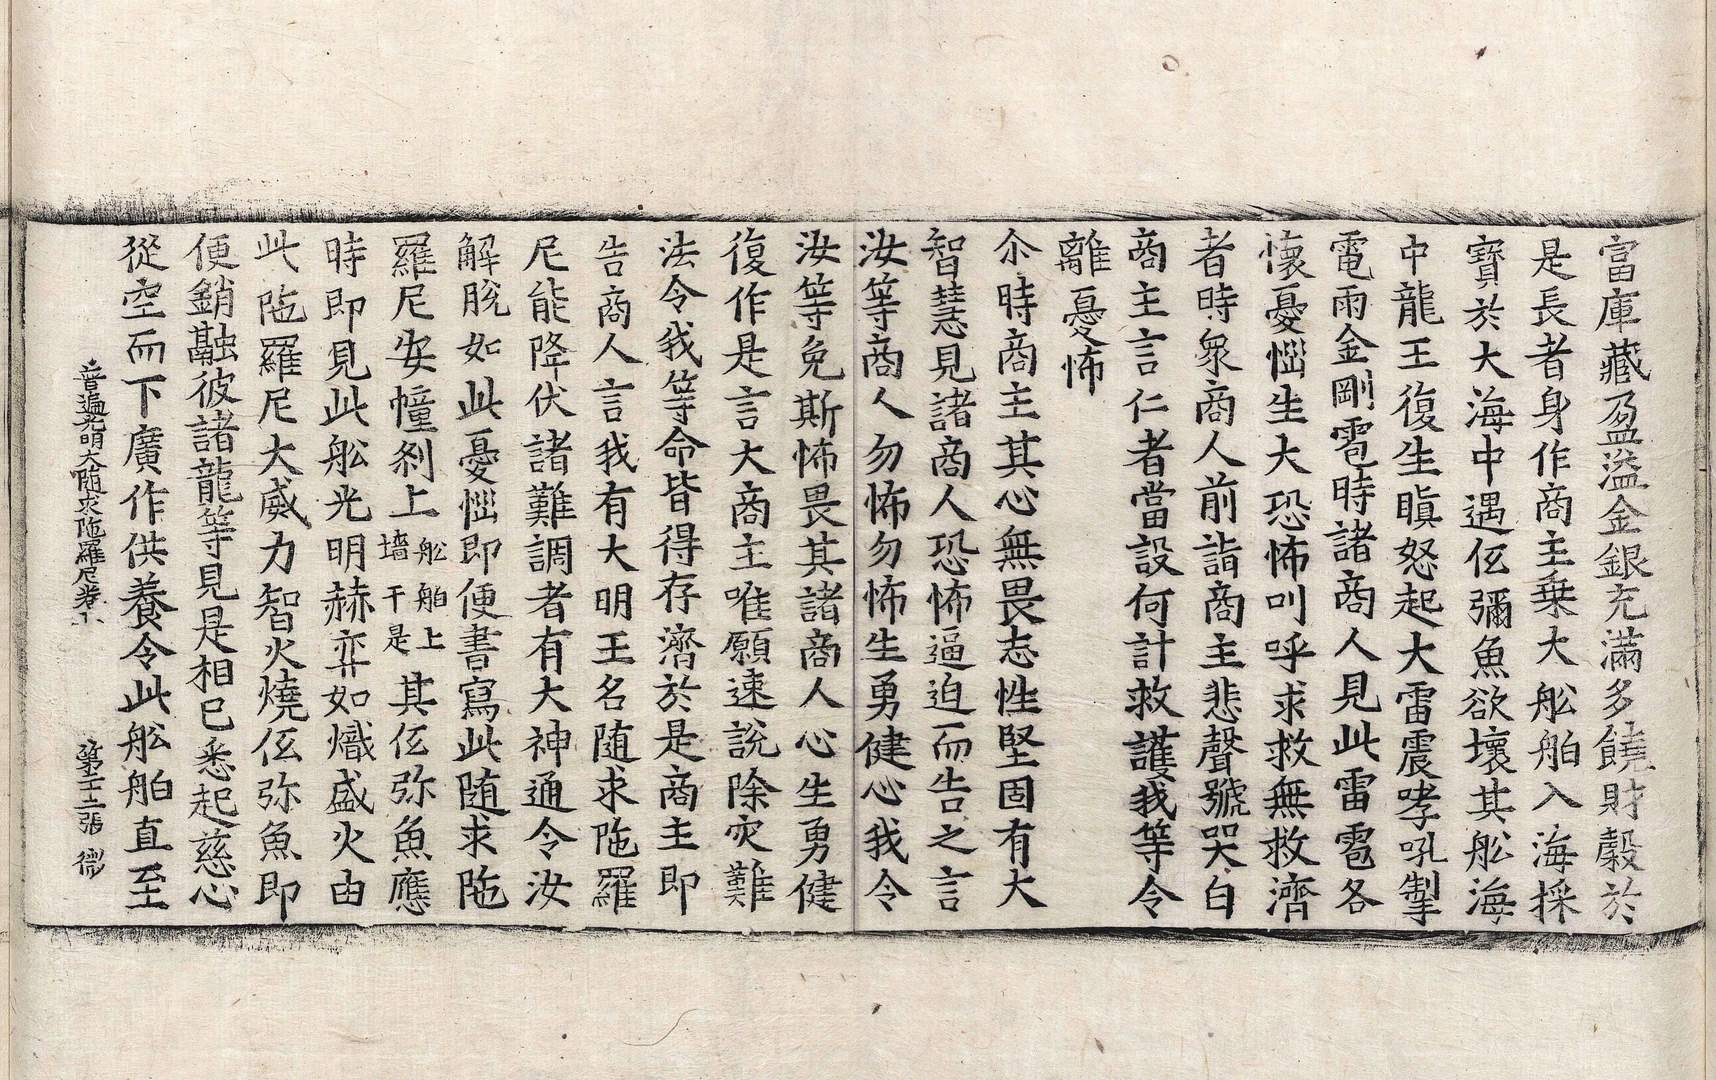 富庫藏盈溢金銀充滿多饒財穀於
是長者身作商主乗大舩舶入海採
寶於大海中遇伭彌魚欲壞其舩海
中龍王復生瞋怒起大雷震哮吼掣
電雨金剛雹時諸商人見此雷雹各
懷憂惱生大恐怖叫呼求救無救濟
者時衆商人前詣商主悲聲號哭白
商主言仁者當設何計救護我等令
離憂怖
尒時商主其心無畏志性堅固有大
智慧見諸商人恐怖逼迫而告之言
汝等商人勿怖勿怖生勇健心我令
汝等免斯怖畏其諸商人心生勇健
復作是言大商主唯願速說除灾難
法令我等命皆得存濟於是商主即
告商人言我有大明王名随求陁羅
尼能降伏諸難調者有大神通令汝
解脫如此憂惱即便書寫此随求陁
羅尼安幢刹上舩舶上墻干是其伭弥魚應
時即見此舩光明赫弈如熾盛火由
此陁羅尼大威力智火燒伭弥魚即
便銷融彼諸龍等見是相已悉起慈心
從空而下廣作供養令此舩舶直至
普遍光明大随求陁羅尼卷下 第十二張